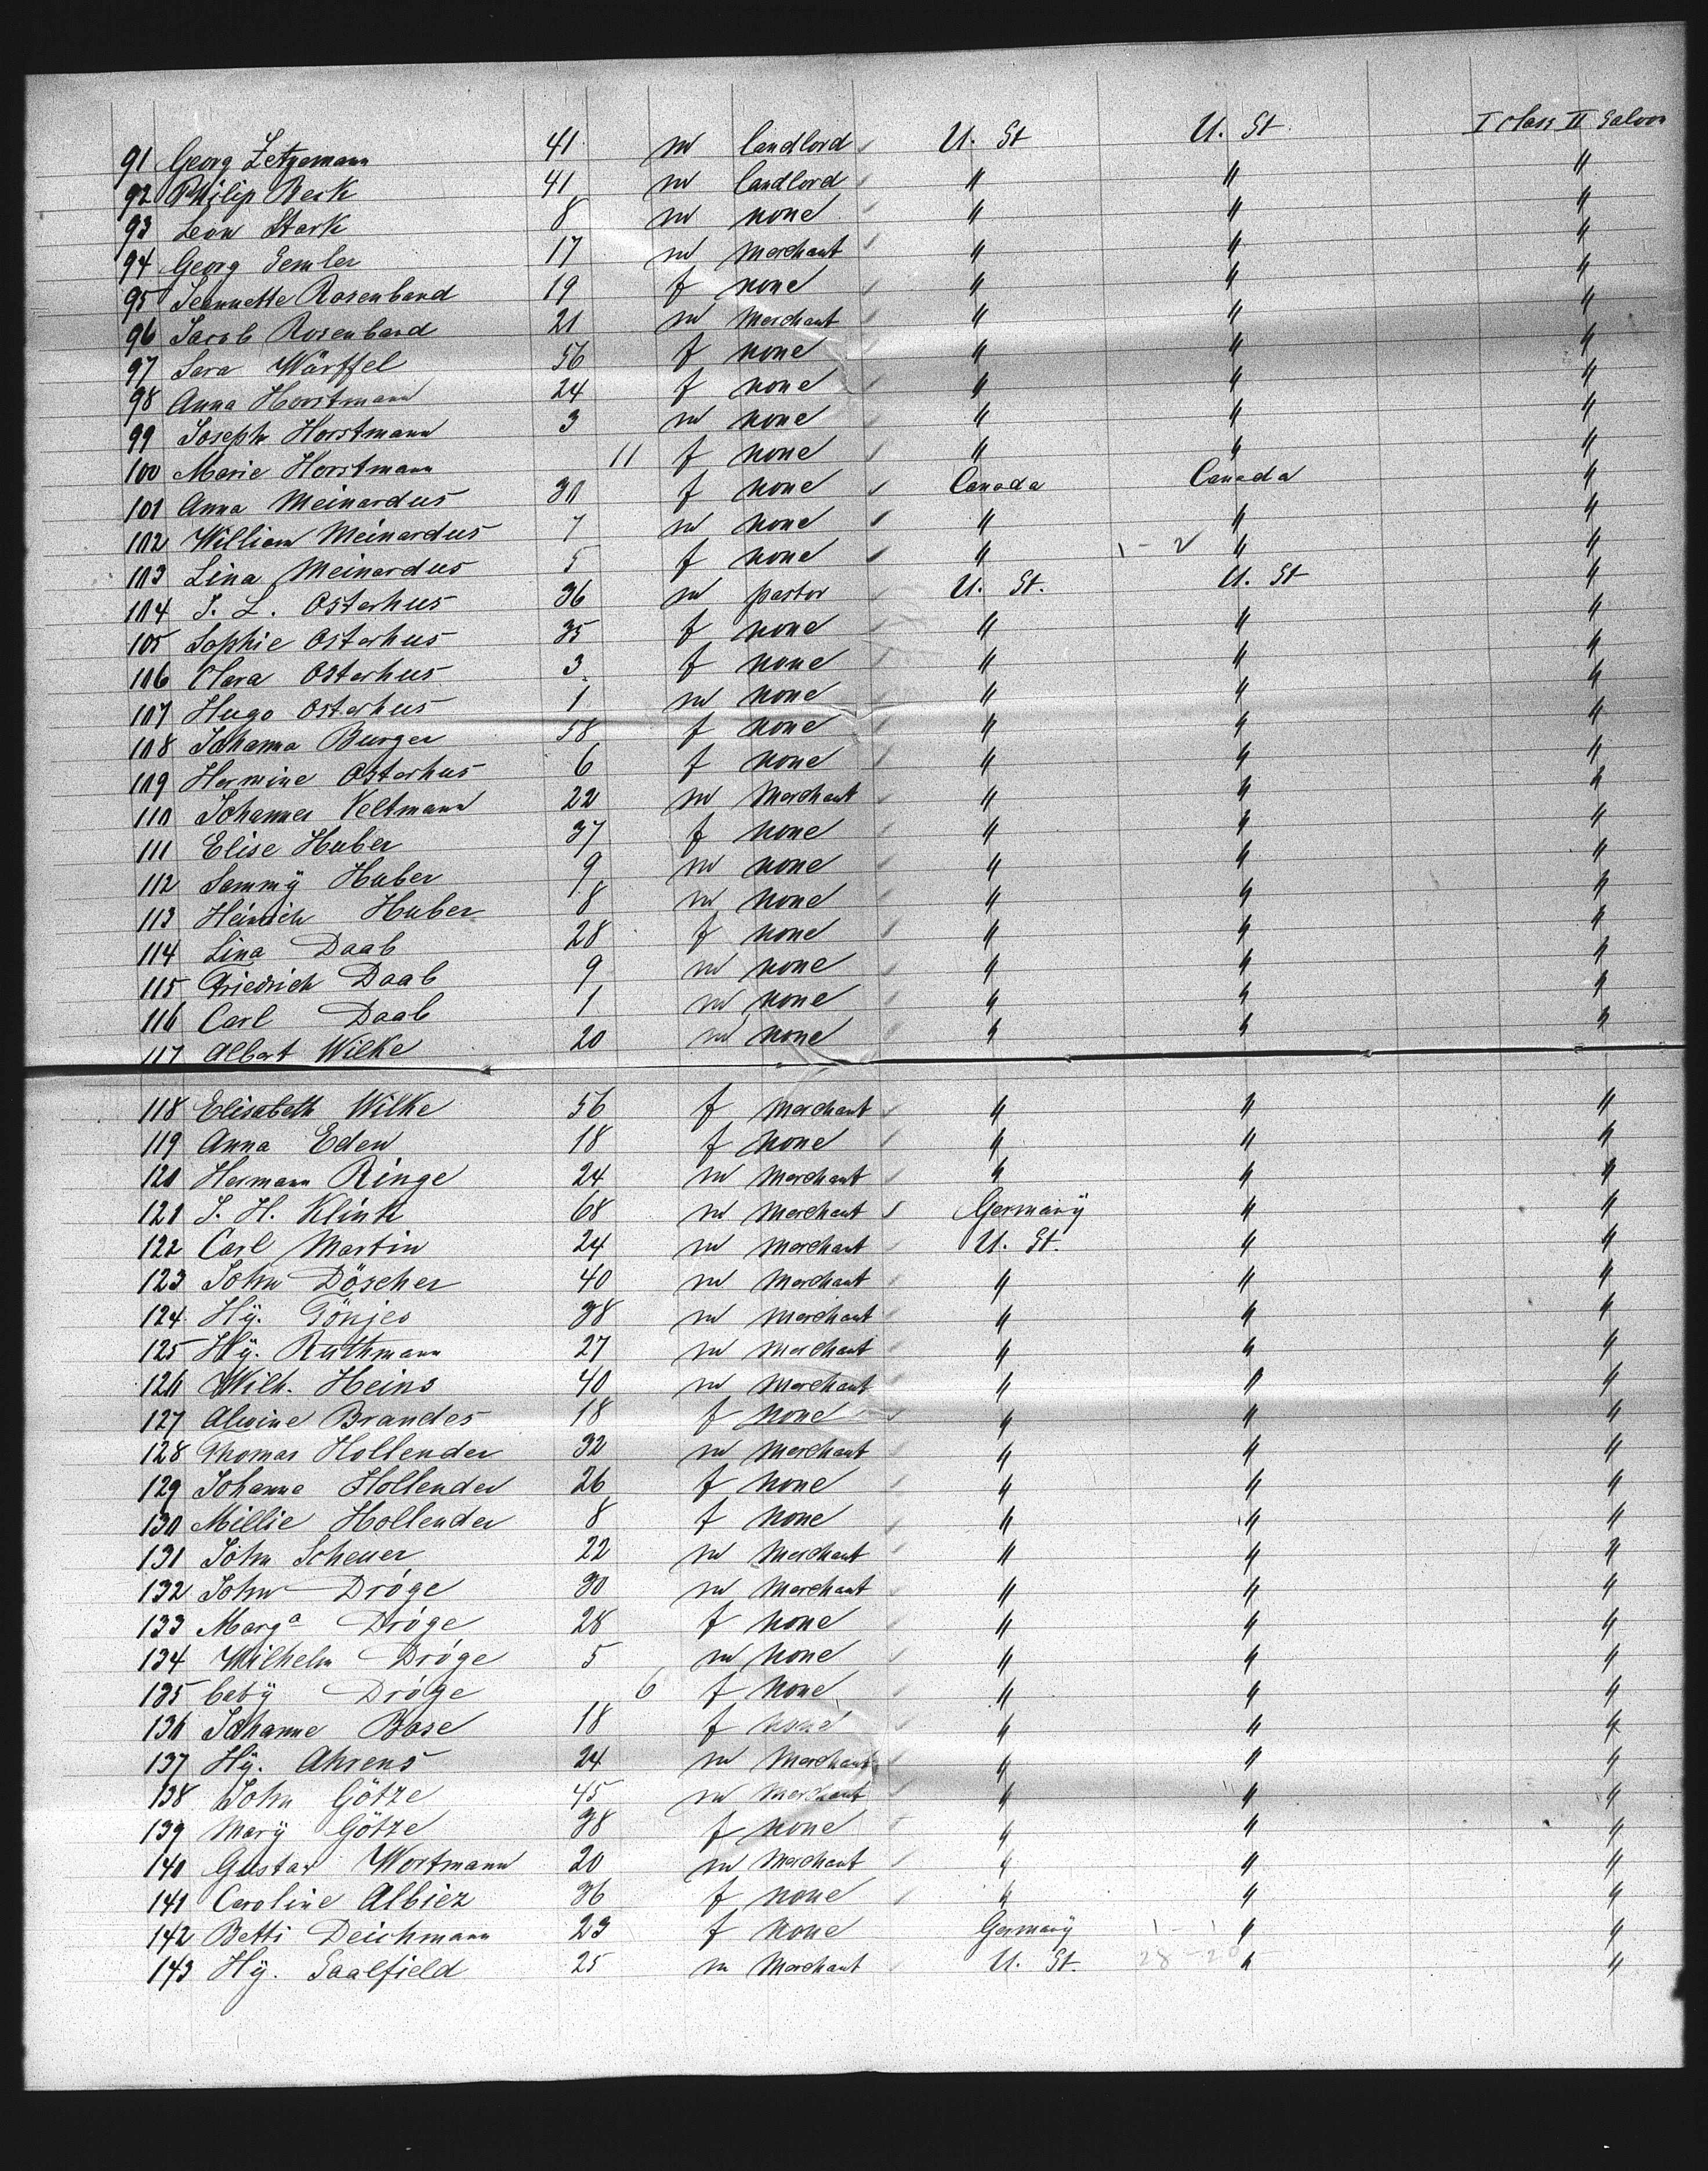 91 Georg Zetzemann 41 m landlord U. St U. St. I Class II Saloon
92 Philip Beck 41 m landlord " " "
93 Leon Stark 8 m none " " "
94 Georg Semler 17 m Merchant " " "
95 Jeannette Rosenband 19 f none " " "
96 Jacob Rosenband 21 m Merchant " " "
97 Sara Würffel 56 f none " " "
98 Anna Horstmann 24 f none " " "
99 Joseph Horstmann 3 m none " " "
100 Marie Horstmann 11 f none " " "
101 Anna Meinardus 30 f none Canada Canada "
102 William Meinardus 7 m none " " "
103 Lina Meinardus 5 f none " 1-2 " "
104 J. L. Osterhus 36 m pastor U. St. U. St "
105 Sophie Osterhus 35 f none " " "
106 Clara Osterhus 3 f none " " "
107 Hugo Osterhus 1 m none " " "
108 Johanna Burger 58 f none " " "
109 Hermine Osterhus 6 f none " " "
110 Johannes Veltmann 22 m Merchant " " "
111 Elise Huber 37 f none " " "
112 Sammÿ Huber 9 m none " " "
113 Heinrich Huber 8 m none " " "
114 Lina Daab 28 f none " " "
115 Friedrich Daab 9 m none " " "
116 Carl Daab 1 m none " " "
117 Albert Wilke 20 m none " " "
118 Elisabeth Wilke 56 f Merchant " " "
119 Anna Eden 18 f none " " "
120 Hermann Ringe 24 m Merchant " " "
121 J. H. Klink 68 m Merchant Germanÿ " "
122 Carl Martin 24 m Merchant U. St. " "
123 John Döscher 40 m Merchant " " "
124 Hÿ. Tönjes 38 m Merchant " " "
125 Hÿ. Ruthmann 27 m Merchant " " "
126 Wilh. Heins 40 m Merchant " " "
127 Alwine Brandes 18 f none " " "
128 Thomas Hollender 32 m Merchant " " "
129 Johanna Hollender 26 f none " " "
130 Millie Hollender 8 f none " " "
131 John Scheuer 22 m Merchant " " "
132 John Dröge 30 m Merchant " " "
133 Marga Dröge 28 f none " " "
134 Wilhelm Dröge 5 m none " " "
135 babÿ Dröge 6 f none " " "
136 Johanne Bose 18 f none " " "
137 Hÿ. Ahrens 24 m Merchant " " "
138 John Götze 45 m Merchant " " "
139 Marÿ Götze 38 f none " " "
140 Gustav Wortmann 20 m Merchant " " "
141 Caroline Albiez 36 f none " " "
142 Betti Deichmann 23 f none Germanÿ 1-1 " "
143 Hÿ. Saalfield 25 m Merchant U. St. " "